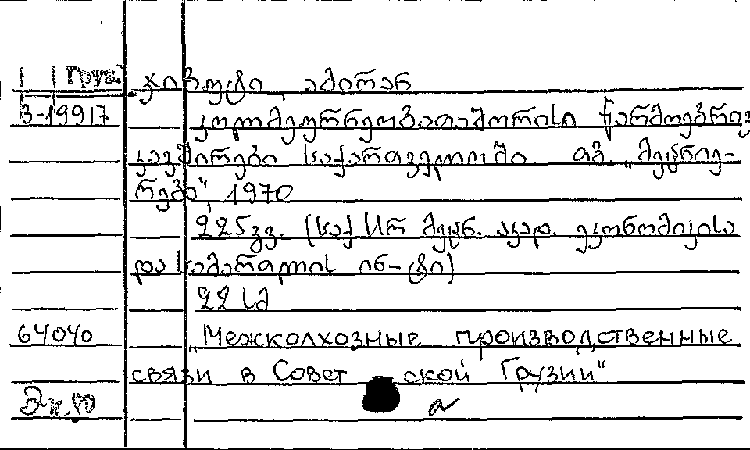 Груз.
ჯიბუტი, ამირან
В-19917
კოლმეურნეობათაშორისი წარმოებრივ
კავშირები საქართველოში თბ. „მეცნიე-
რება", 1970
225 გვ. (საქ სსრ მეცნ. აკად. ეკონომიკისა
და სამართლის ინ-ტი)
22 სმ
64040
„Межколхозные производственные
связи в Совет ской Грузии"